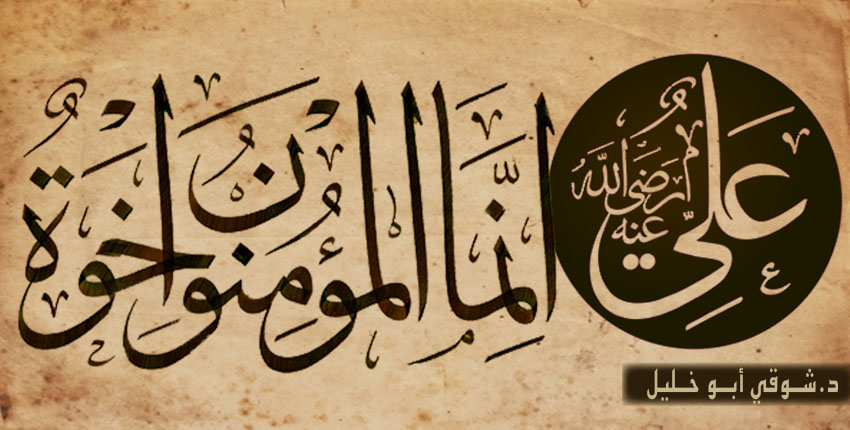 علي رضي الله عنه
إنما المؤمنون إخوة
د.شوقي أبو خليل